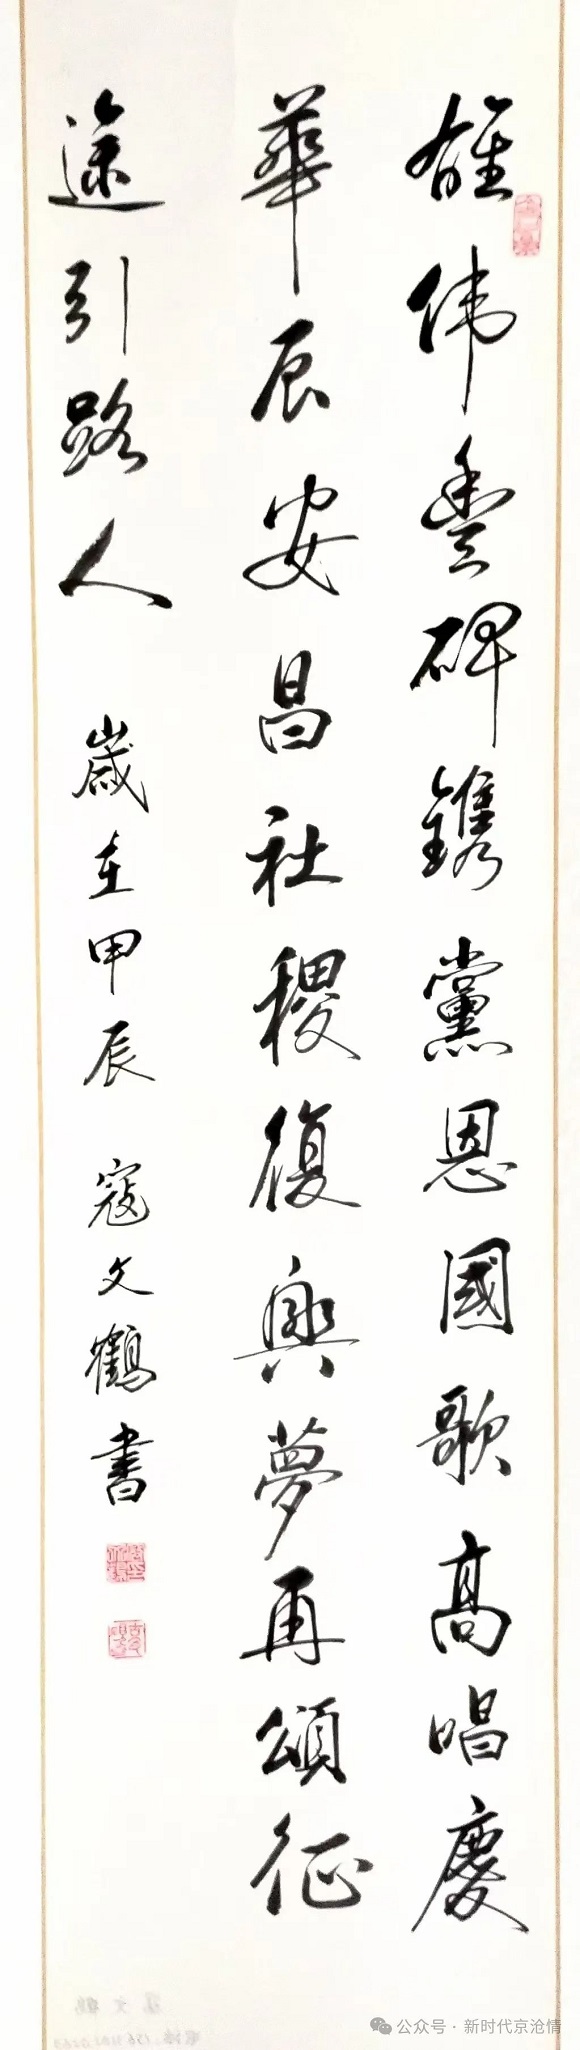 雄伟豐碑鐫黨恩國歌高唱慶
華辰安昌社稷復興夢再頌征
途引路人
歲在甲辰 寇文鶴書
公众号·新时代京沧情